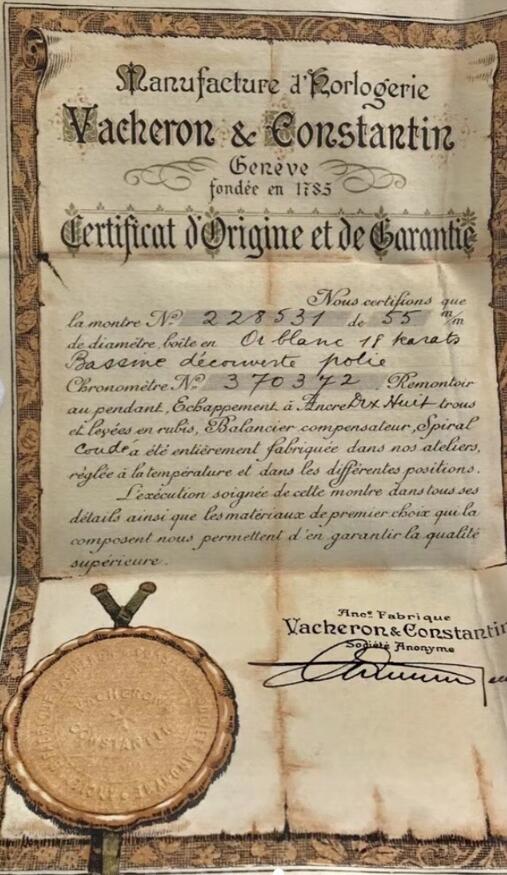 Manufacture d'Horlogerie
Vacheron & Constantin
Genève
fondée en 1785
Certificat d'Origine et de Garantie
Nous certifions que
la montre Nº 228531 de 55 m/m
de diamètre, boîte en Or blanc 18 karats
Bassine découverte polie
Chronomètre Nº 370372. Remontoir
au pendant, Echappement à Ancre Dix Huit trous
et levées en rubis, Balancier compensateur, Spiral
Coudé a été entièrement fabriquée dans nos ateliers,
réglée à la température et dans les différentes positions.
L'exécution soignée de cette montre dans tous ses
détails ainsi que les matériaux de premier choix qui la
composent nous permettent d'en garantir la qualité
supérieure.
Ancne Fabrique
Vacheron & Constantin
Société Anonyme
VACHERON
CONSTANTIN